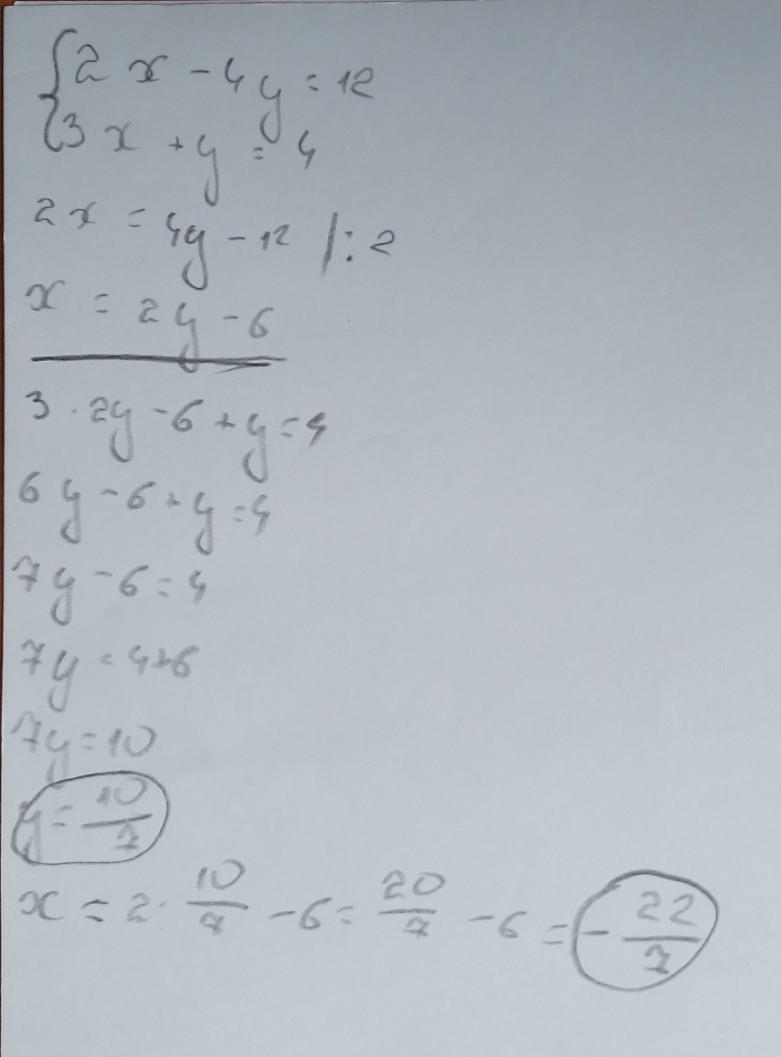 {2x - 4y = 12
{3x + y = 4
2x = 4y - 12 /: 2
x = 2y - 6
3 · 2y - 6 + y = 4
6y - 6 + y = 4
7y - 6 = 4
7y = 4+6
7y = 10
y = 10/7
x = 2 · 10/7 - 6 = 20/7 - 6 = - 22/7